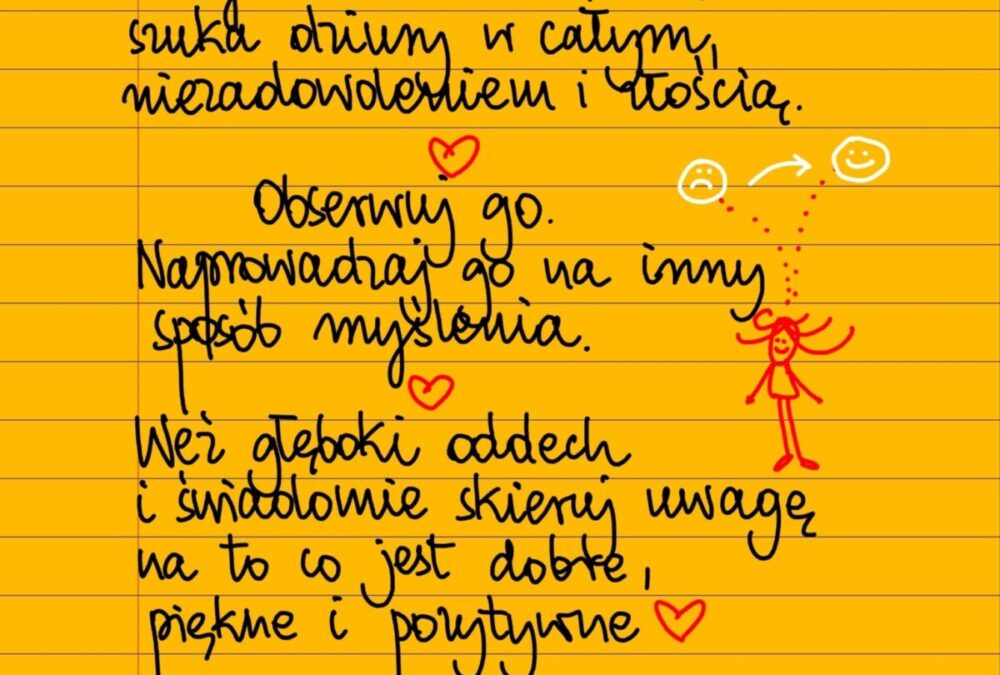 szuka dziury w całym,
niezadowoleniem i złością.
Obserwuj go.
Naprowadzaj go na inny
sposób myślenia.
Weź głęboki oddech
i świadomie skieruj uwagę
na to co jest dobre,
piękne i pozytywne